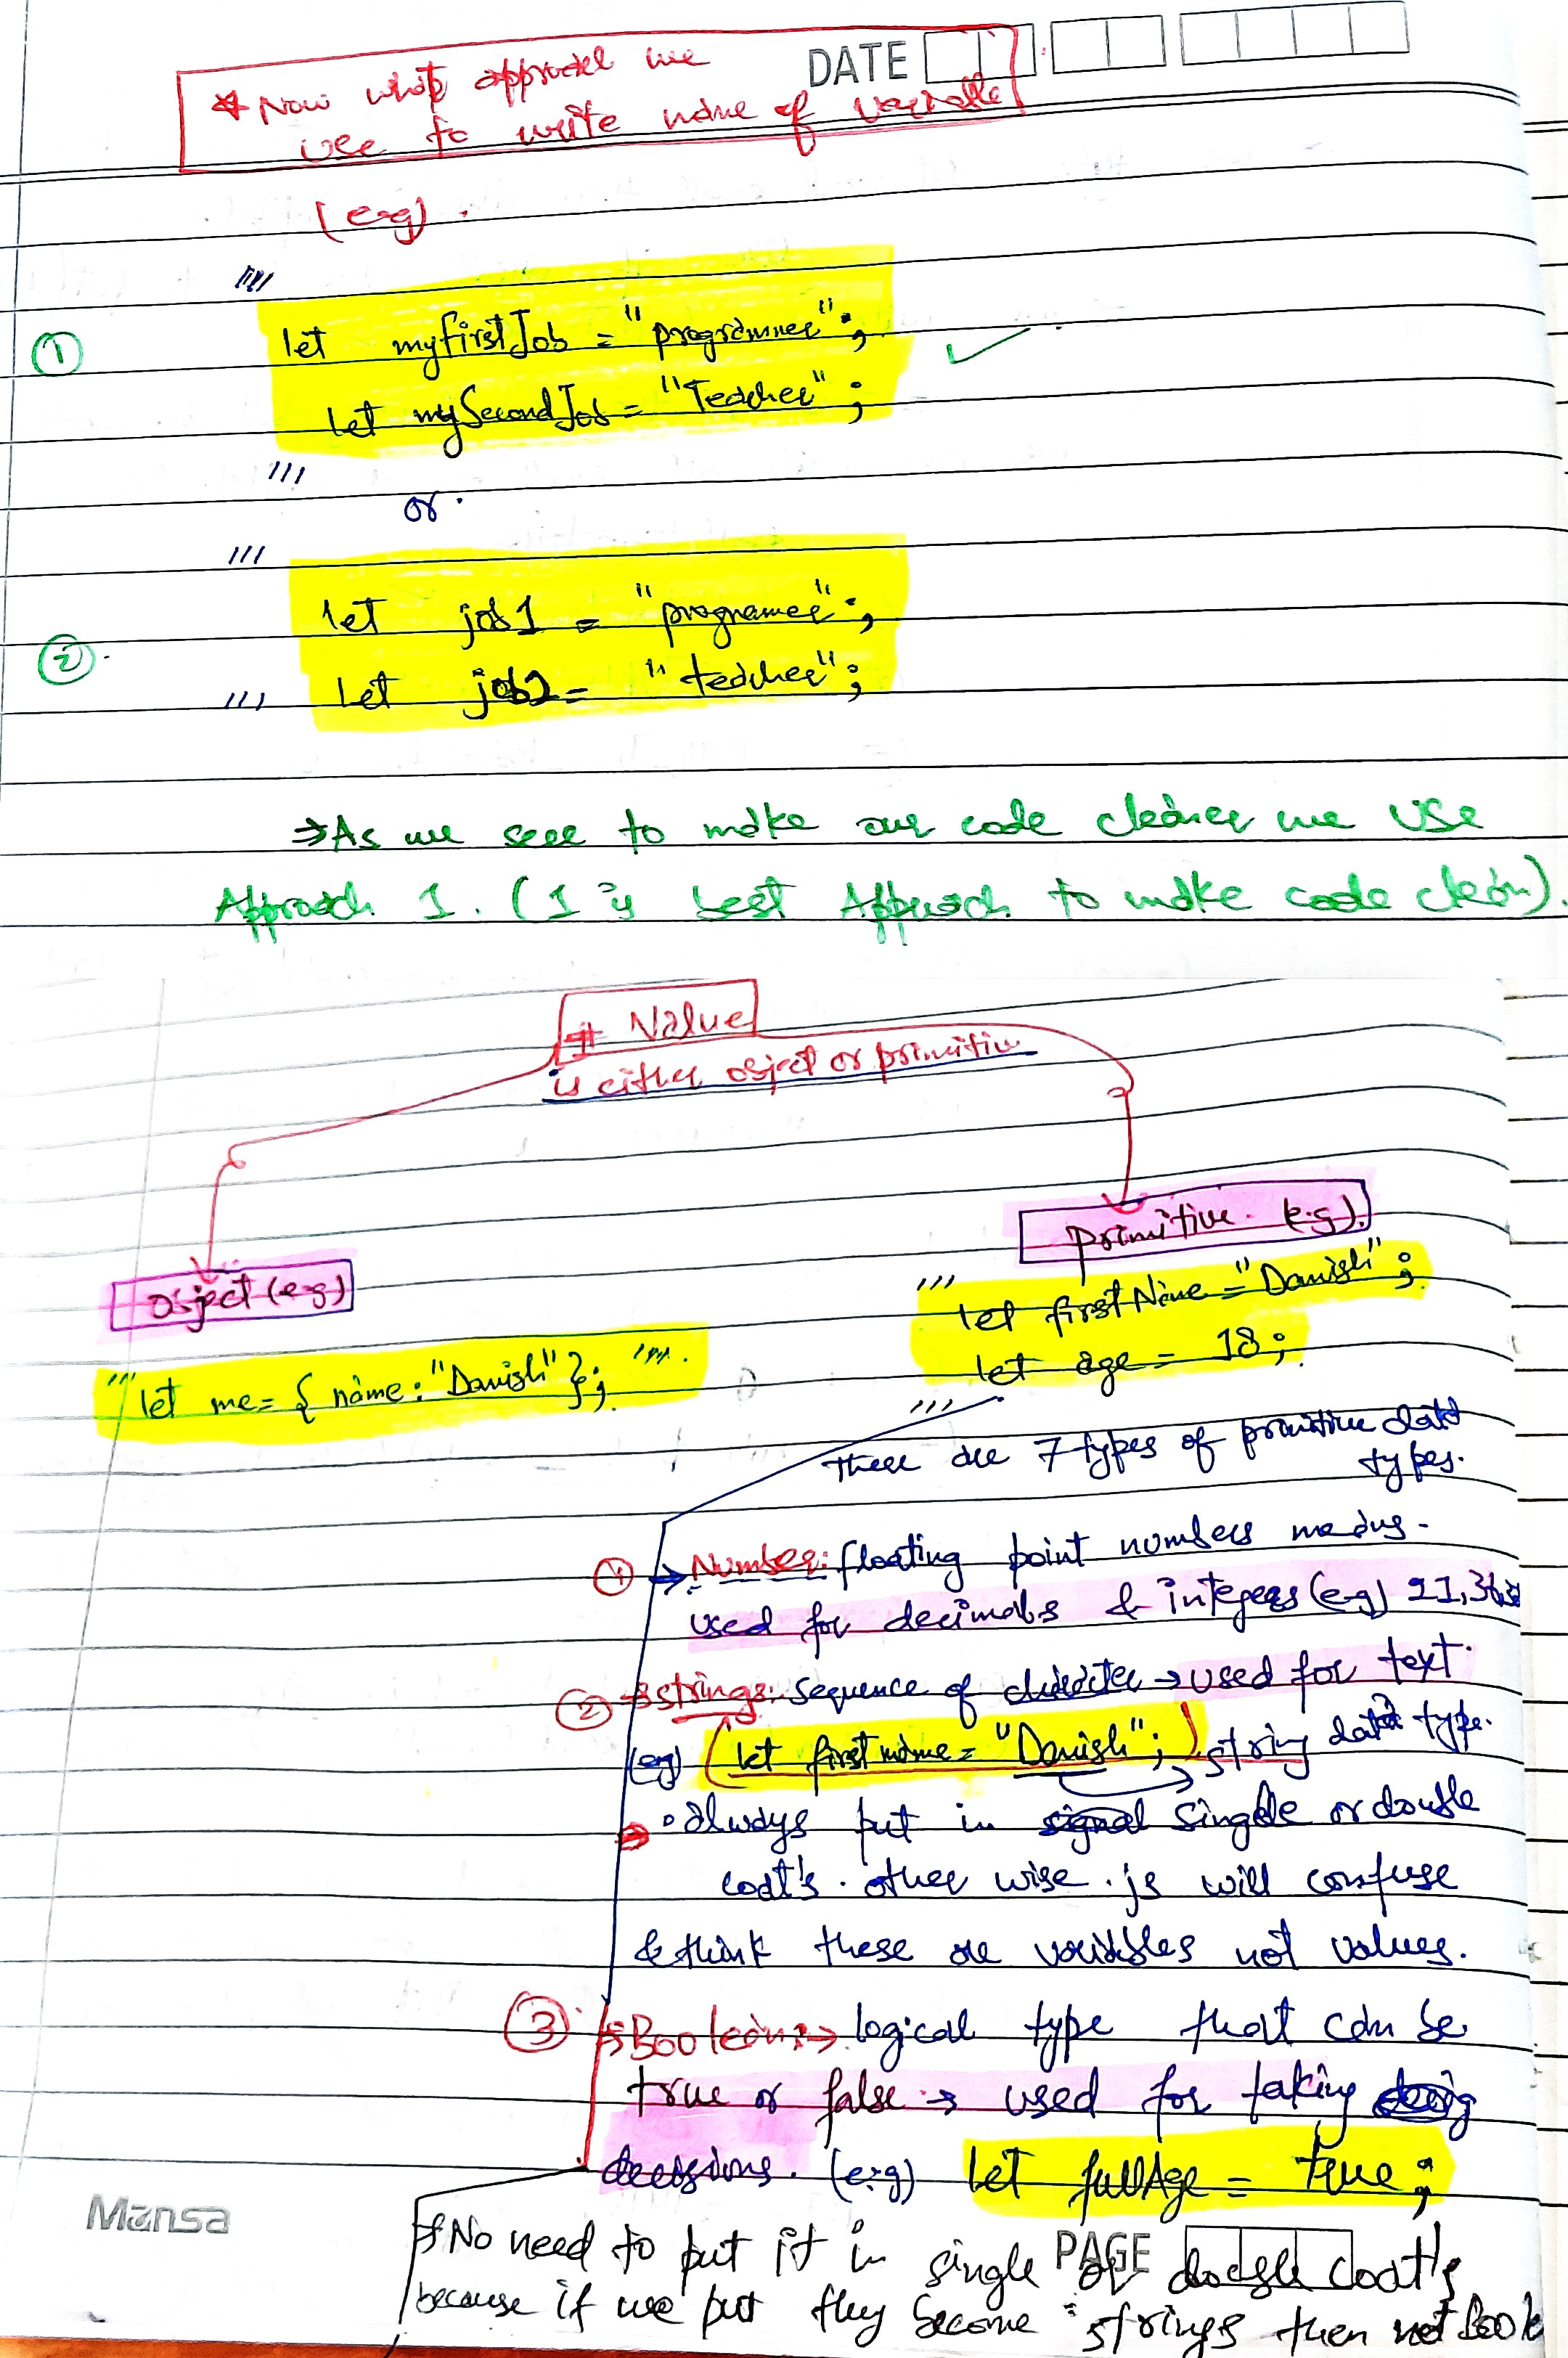 DATE
* Now what approach we
use to write name of variable
(e.g).
""
① let myfirstJob = "programmer";
let mySecondJob = "Teacher";
'''
or.
'''
② let job1 = "programer";
''' let job2 = "teacher";
⇒As we see to make our code cleaner we use
Approach 1. (1 is best Approach to make code clean).
# Value
is either object or primitive
primitive. (e.g).
object (e.g)
''' let firstName = "Danish";
let age = 18;
'''
''' let me = { name: "Danish" }; '''.
There are 7 types of primitive data
types.
① → Number: floating point numbers means.
used for decimals & integers (e.g)
② → strings: sequence of character → used for text.
(eg) (let firstname = "Danish";) string data type.
• always put in single or double
coat's. other wise. js will confuse
& think these are variables not values.
③ → Boolean:→ logical type that can be
true or false → used for taking
decessions. (e.g) let fullAge = true;
Mansa
→ No need to put it in single or double Coat's
PAGE
because if we put they become strings then not